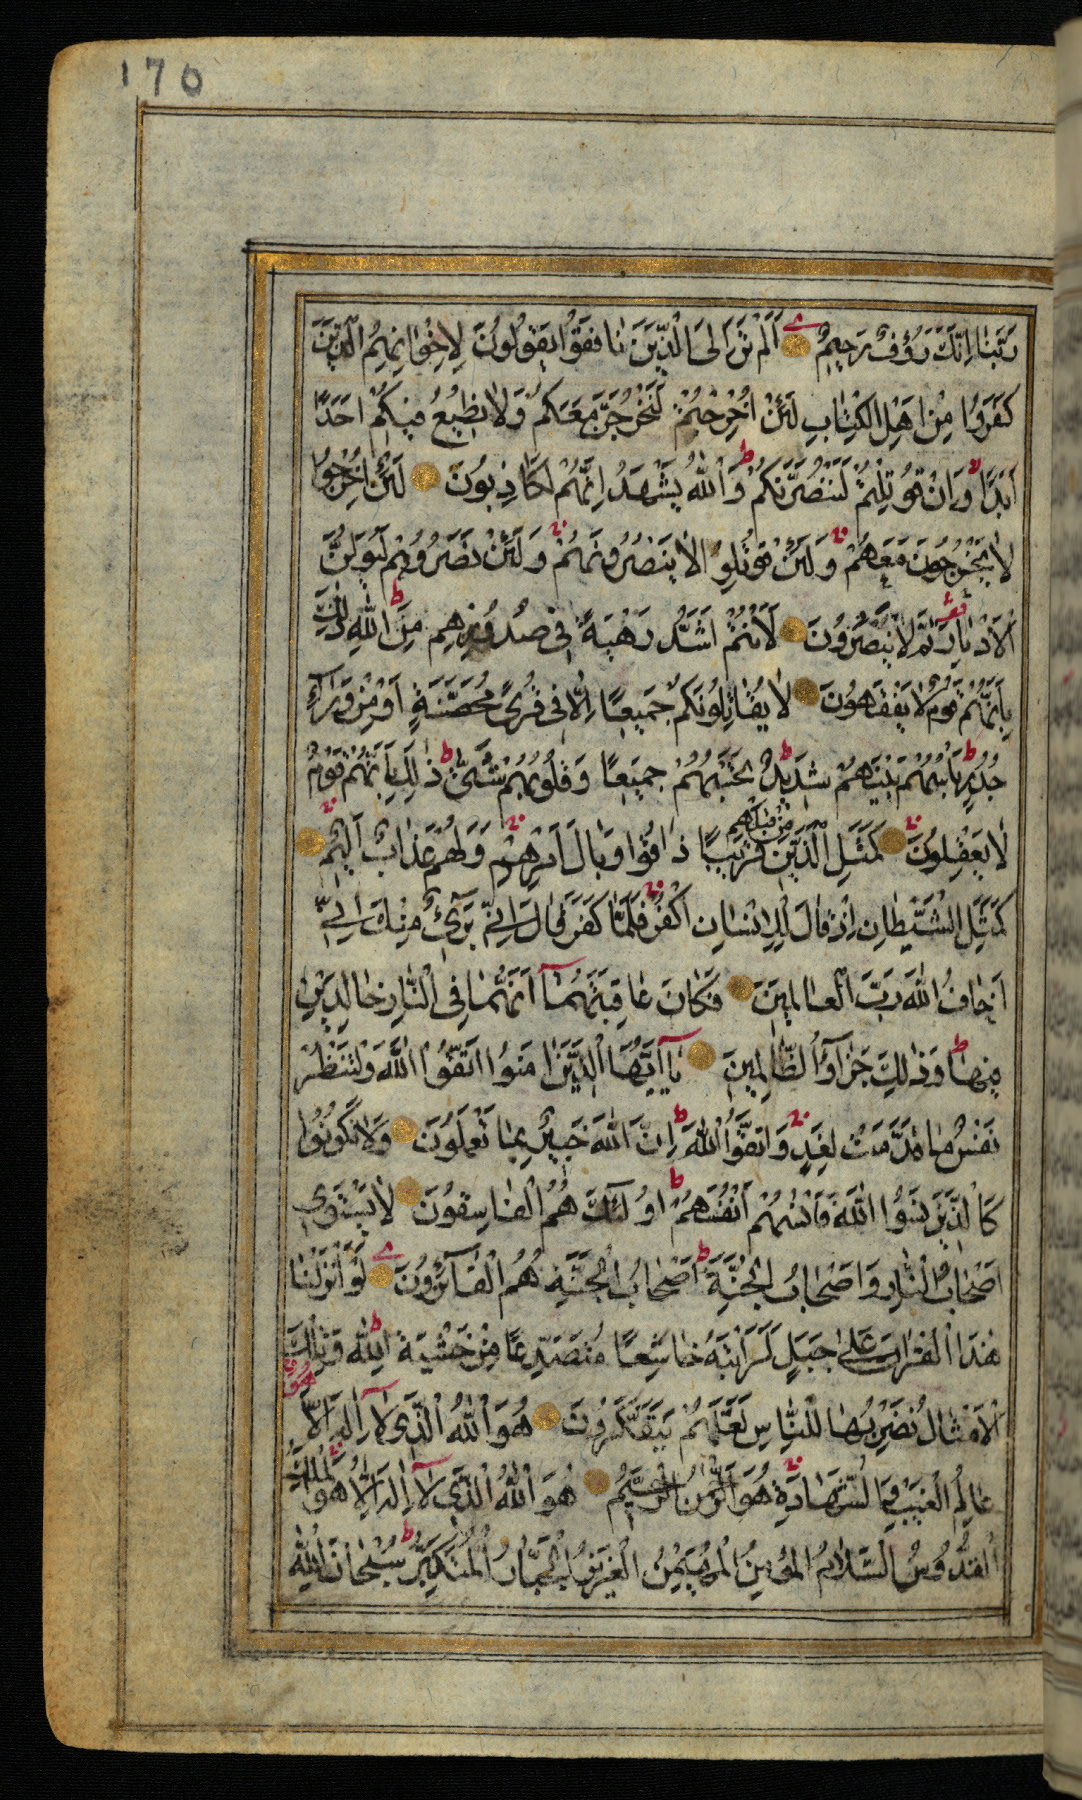 170
رَبَّنَا اِنَّكَ رَؤُفٌ رَحِيمٌ اَلَمْ تَرَ اِلَى الَّذِينَ نَافَقُوا يَقُولُونَ لِاِخْوَانِهِمُ الَّذِينَ
كَفَرُوا مِنْ اَهْلِ الْكِتَابِ لَئِنْ اُخْرِجْتُمْ لَنَخْرُجَنَّ مَعَكُمْ وَلَا نُطِيعُ فِيكُمْ اَحَدًا
اَبَدًا وَاِنْ قُوتِلْتُمْ لَنَنْصُرَنَّكُمْ ط وَاللّٰهُ يَشْهَدُ اِنَّهُمْ لَكَاذِبُونَ لَئِنْ اُخْرِجُوا
لَا يَخْرُجُونَ مَعَهُمْ وَلَئِنْ قُوتِلُوا لَا يَنْصُرُونَهُمْ وَلَئِنْ نَصَرُوهُمْ لَيُوَلُّنَّ
الْاَدْبَارَ ثُمَّ لَا يُنْصَرُونَ لَاَنْتُمْ اَشَدُّ رَهْبَةً فِى صُدُورِهِمْ مِنَ اللّٰهِ ط ذٰلِكَ
بِاَنَّهُمْ قَوْمٌ لَا يَفْقَهُونَ لَا يُقَاتِلُونَكُمْ جَمِيعًا اِلَّا فِى قُرًى مُحَصَّنَةٍ اَوْ مِنْ وَرَآءِ
جُدُرٍ ط بَاْسُهُمْ بَيْنَهُمْ شَدِيدٌ ط تَحْسَبُهُمْ جَمِيعًا وَقُلُوبُهُمْ شَتّٰى ط ذٰلِكَ بِاَنَّهُمْ قَوْمٌ
لَا يَعْقِلُونَ كَمَثَلِ الَّذِينَ مِنْ قَبْلِهِمْ قَرِيبًا ذَاقُوا وَبَالَ اَمْرِهِمْ وَلَهُمْ عَذَابٌ اَلِيمٌ
كَمَثَلِ الشَّيْطَانِ اِذْ قَالَ لِلْاِنْسَانِ اكْفُرْ فَلَمَّا كَفَرَ قَالَ اِنِّى بَرِىءٌ مِنْكَ اِنِّى
اَخَافُ اللّٰهَ رَبَّ الْعَالَمِينَ فَكَانَ عَاقِبَتَهُمَآ اَنَّهُمَا فِى النَّارِ خَالِدَيْنِ
فِيهَا ط وَذٰلِكَ جَزَآؤُا الظَّالِمِينَ يَآ اَيُّهَا الَّذِينَ اٰمَنُوا اتَّقُوا اللّٰهَ وَلْتَنْظُرْ
نَفْسٌ مَا قَدَّمَتْ لِغَدٍ وَاتَّقُوا اللّٰهَ ط اِنَّ اللّٰهَ خَبِيرٌ بِمَا تَعْمَلُونَ وَلَا تَكُونُوا
كَالَّذِينَ نَسُوا اللّٰهَ فَاَنْسٰهُمْ اَنْفُسَهُمْ ط اُولٰئِكَ هُمُ الْفَاسِقُونَ لَا يَسْتَوِى
اَصْحَابُ النَّارِ وَاَصْحَابُ الْجَنَّةِ ط اَصْحَابُ الْجَنَّةِ هُمُ الْفَآئِزُونَ لَوْ اَنْزَلْنَا
هٰذَا الْقُرْاٰنَ عَلٰى جَبَلٍ لَرَاَيْتَهُ خَاشِعًا مُتَصَدِّعًا مِنْ خَشْيَةِ اللّٰهِ ط وَتِلْكَ
الْاَمْثَالُ نَضْرِبُهَا لِلنَّاسِ لَعَلَّهُمْ يَتَفَكَّرُونَ هُوَ اللّٰهُ الَّذِى لَآ اِلٰهَ اِلَّا هُوَ
عَالِمُ الْغَيْبِ وَالشَّهَادَةِ هُوَ الرَّحْمٰنُ الرَّحِيمُ هُوَ اللّٰهُ الَّذِى لَآ اِلٰهَ اِلَّا هُوَ اَلْمَلِكُ
الْقُدُّوسُ السَّلَامُ الْمُؤْمِنُ الْمُهَيْمِنُ الْعَزِيزُ الْجَبَّارُ الْمُتَكَبِّرُ ط سُبْحَانَ اللّٰهِ